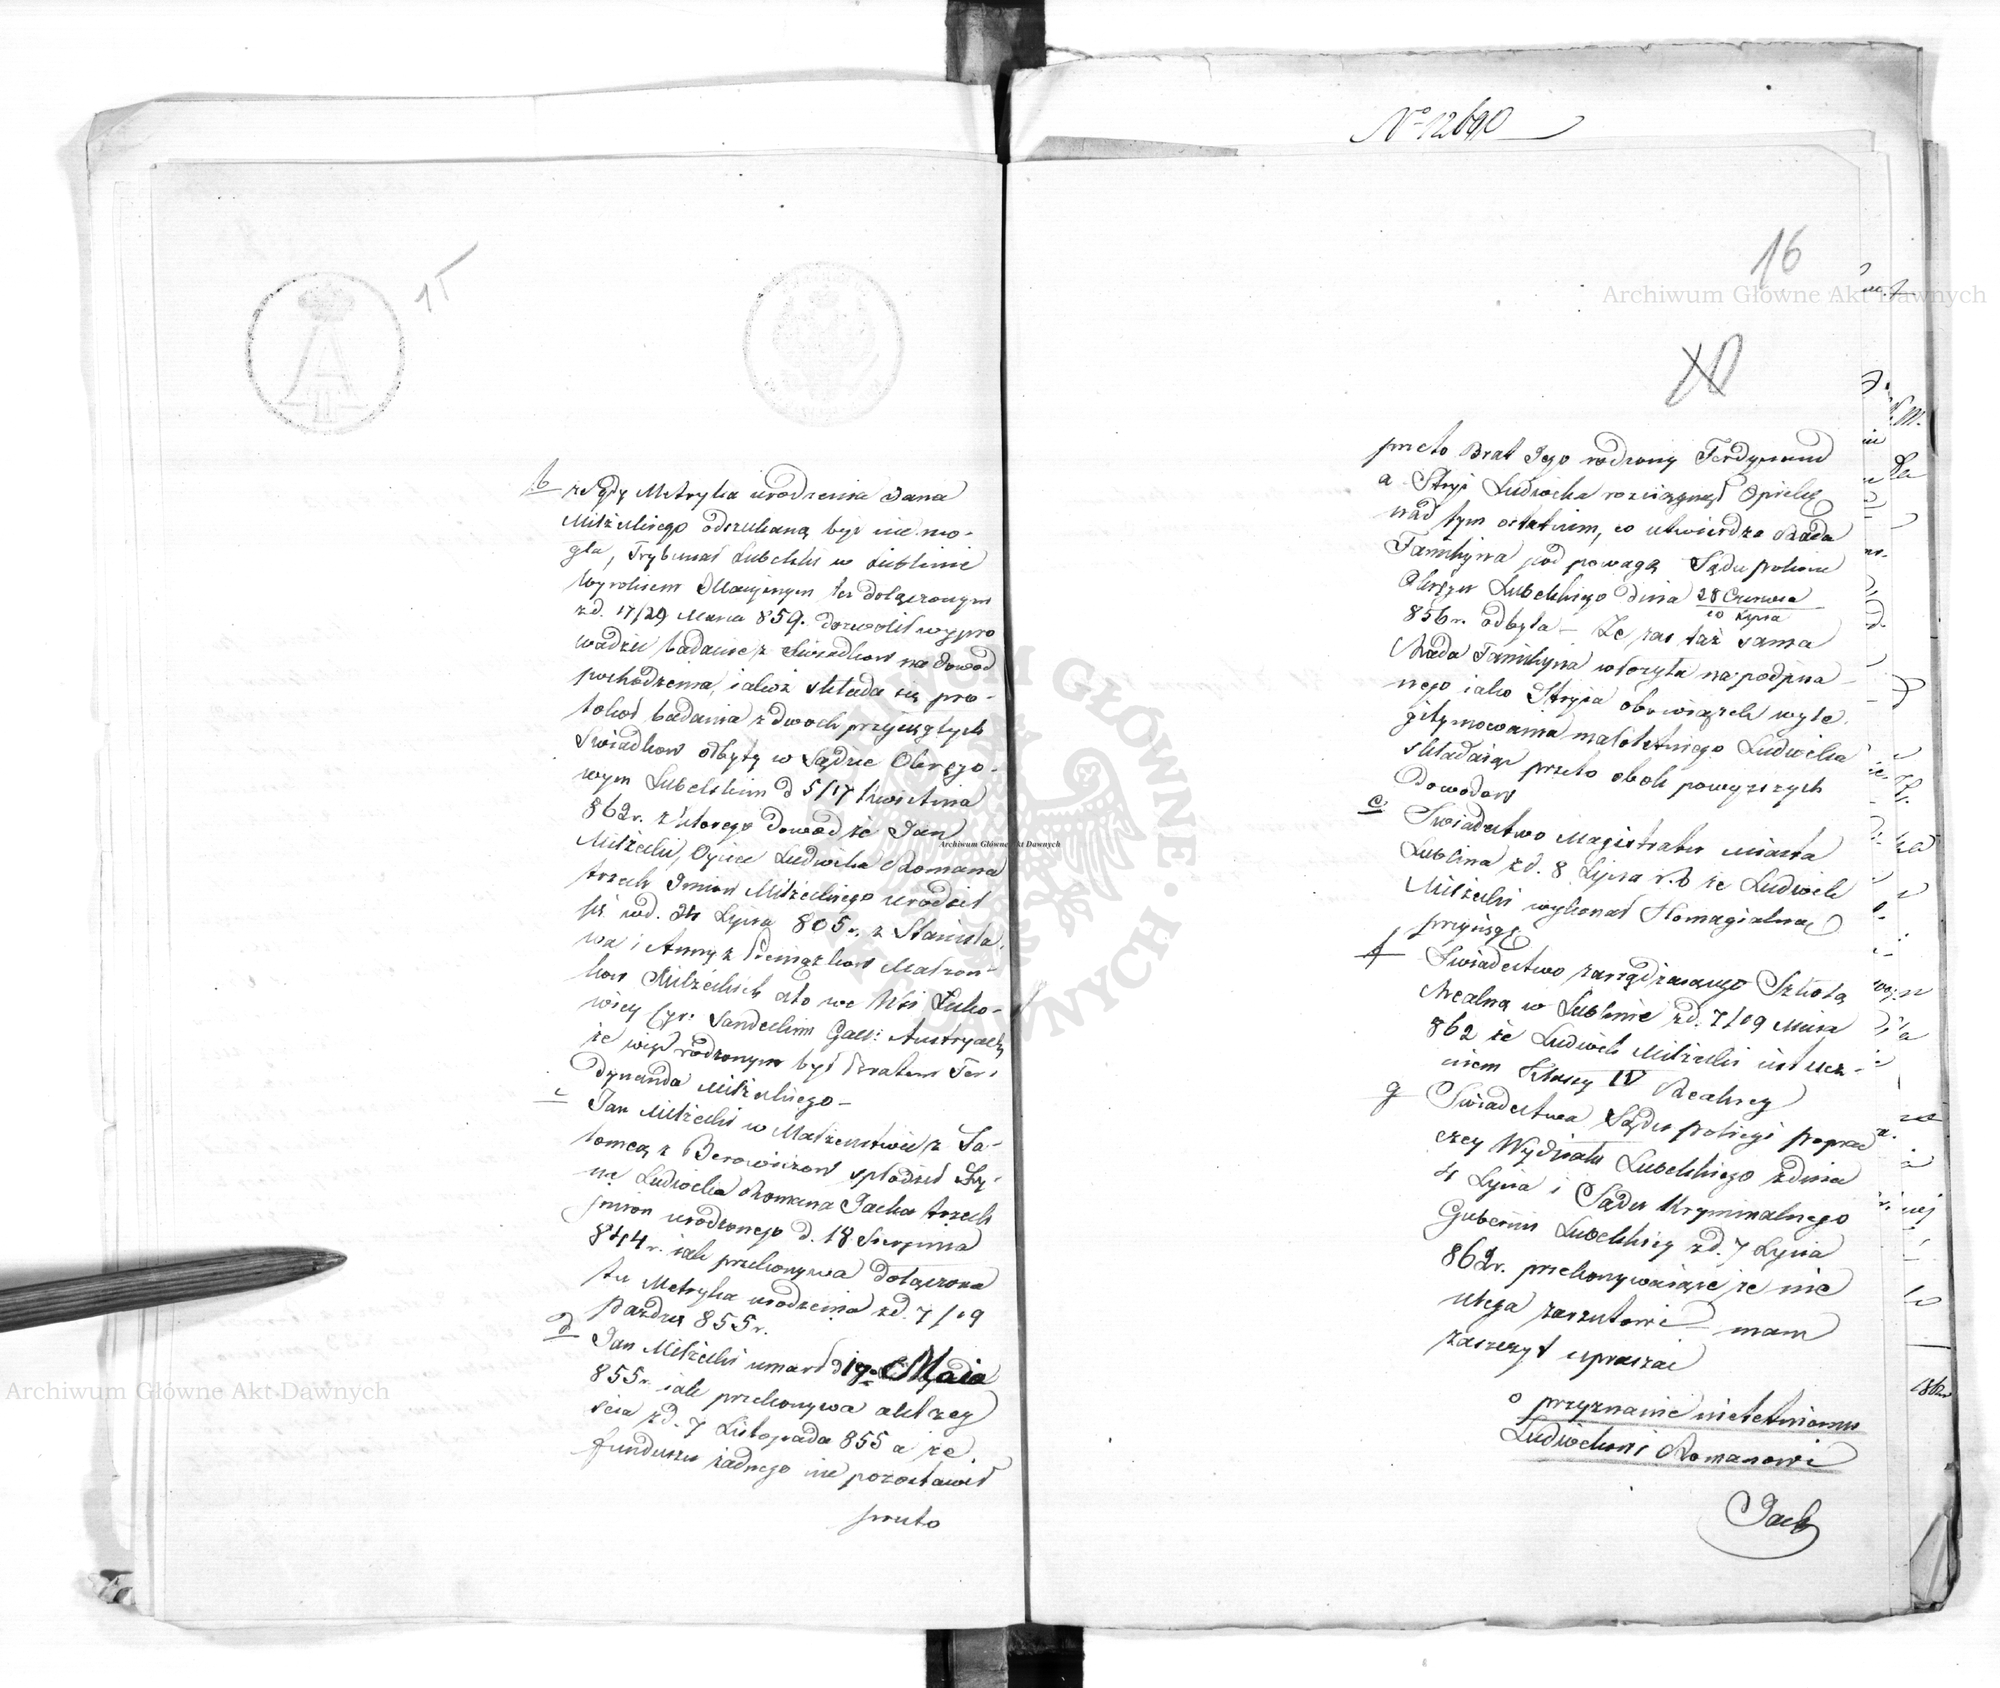 15
b że gdy Metryka urodzenia Jana
Milżeckiego odszukaną być nie mo-
gła, Trybunał Lubelski w Lublinie
Wyrokiem Illacyjnym tu dołączonym
z d. 17/29 Marca 859. dozwolił wypro
wadzić badanie z Świadków na dowód
pochodzenia, jakoż składa się pro-
tokół badania z dwóch przysięgłych
Świadków odbyty w Sądzie Okręgo-
wym Lubelskim d 5/17 Kwietnia
862r. z którego dowód że Jan
Milżecki, Ojciec Ludwika Romana
trzech Imion Milżeckiego urodził
się w d. 24 Lipca 805r. z Stanisła-
wa i Anny z Małżon-
ków Milżeckich a to we Wsi
Gali: Austryack
że więc rodzonym był Bratem Fer-
dynanda Milżeckiego –
c Jan Milżecki w Małżeństwie z Sa-
lomeą z spłodził Sy-
na Ludwika Romana Jacka trzech
imion urodzonego d. 18 Sierpnia
844r. jak przekonywa dołączona
tu Metryka urodzenia z d. 7/19
Paźdz 855r.
d Jan Milżecki umarł d 19 Maja
855r. jak przekonywa akt zej
ścia z d. 7 Listopada 855 a że
funduszu żadnego nie pozostawił
przeto
No 12690
16
przeto Brat Jego rodzony Ferdynand
a Stryj Ludwika rozciągnął Opiekę
nad tym ostatnim, co utwierdza Rada
Familijna pod powagą Sądu pokoju
Okręgu Lubelskiego dnia 28 Czerwca
10 Lipca
856r. odbyta – Że zaś taż sama
Rada Familijna włożyła na podpisa-
nego jako Stryja obowiązek wyle-
gitymowania małoletniego Ludwika
składając przeto obok powyższych
Dowodów
e Świadectwo Magistratu miasta
Lublina z d. 8 Lipca r. b że Ludwik
Milżecki wykonał Homagialną
przysięgę
f Świadectwo zarządzającego Szkołą
Realną w Lublinie z d. 7/19 Maja
862 że Ludwik Milżecki jest ucz-
niem Klassy IV Realnej
g Świadectwa Sądu policyi popraw
czej Wydziału Lubelskiego z dnia
4 Lipca i Sądu Kryminalnego
Gubernii Lubelskiej z d. 7 Lipca
862r. przekonywające że nie
ulega zarzutowi – mam
zaszczyt upraszać
o przyznanie nieletniemu
Ludwikowi Romanowi
Jack
Archiwum Główne Akt Dawnych
Archiwum Główne Akt Dawnych
Archiwum Główne Akt Dawnych
ARCHIWUM GŁÓWNE AKT DAWNYCH